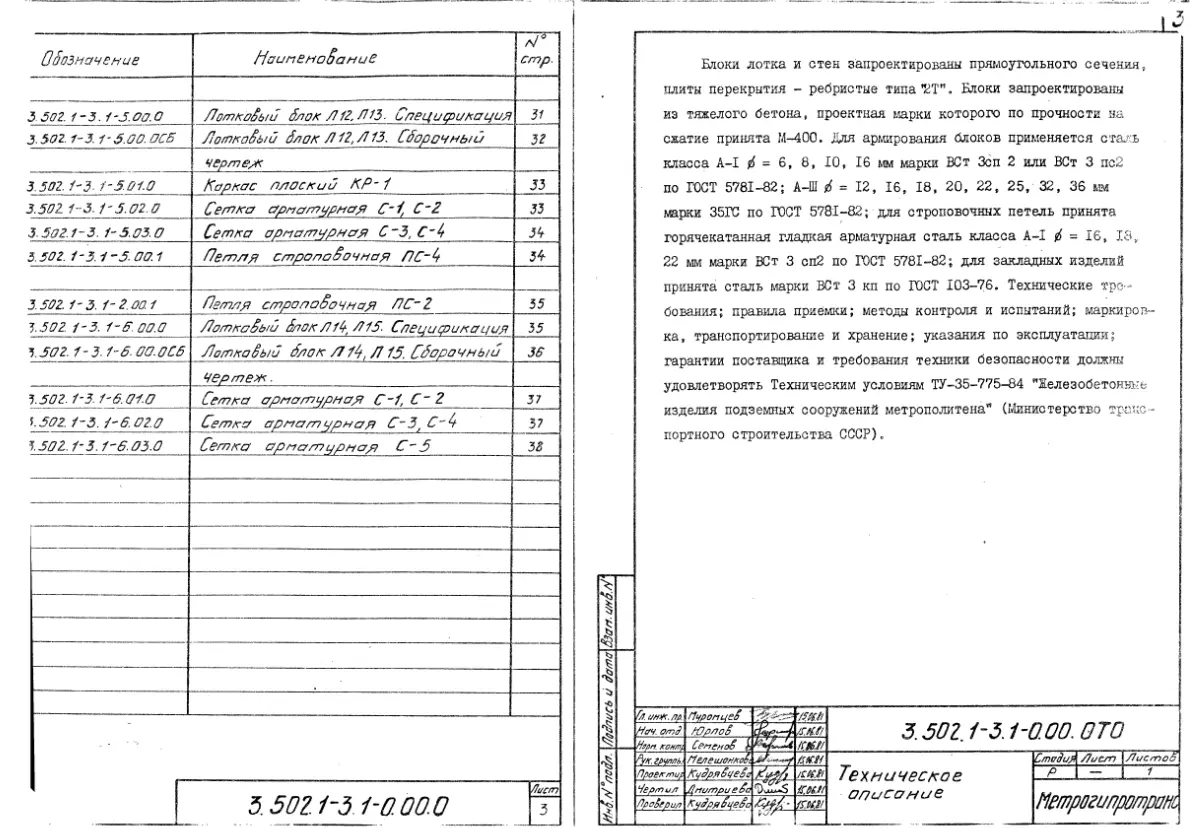 Обозначение Наименование № стр.
3.502.1-3.1-5.00.0 Лотковый блок Л12, Л13. Спецификация 31
3.502.1-3.1-5.00.0СБ Лотковый блок Л12, Л13. Сборочный 32
чертеж
3.502.1-3.1-5.01.0 Каркас плоский КР-1 33
3.502.1-3.1-5.02.0 Сетка арматурная С-1, С-2 33
3.502.1-3.1-5.03.0 Сетка арматурная С-3, С-4 34
3.502.1-3.1-5.00.1 Петля строповочная ПС-4 34
3.502.1-3.1-2.00.1 Петля строповочная ПС-2 35
3.502.1-3.1-6.00.0 Лотковый блок Л14, Л15. Спецификация 35
3.502.1-3.1-6.00.0СБ Лотковый блок Л14, Л15. Сборочный 36
чертеж.
3.502.1-3.1-6.01.0 Сетка арматурная С-1, С-2 37
3.502.1-3.1-6.02.0 Сетка арматурная С-3, С-4 37
3.502.1-3.1-6.03.0 Сетка арматурная С-5 38
3.502.1-3.1-0.00.0
Лист
3
3
Блоки лотка и стен запроектированы прямоугольного сечения,
плиты перекрытия - ребристые типа "2Т". Блоки запроектированы
из тяжелого бетона, проектная марки которого по прочности на
сжатие принята М-400. Для армирования блоков применяется сталь
класса А-I ø = 6, 8, 10, 16 мм марки ВСт 3сп 2 или ВСт 3 пс2
по ГОСТ 5781-82; А-Ш ø = 12, 16, 18, 20, 22, 25, 32, 36 мм
марки 35ГС по ГОСТ 5781-82; для строповочных петель принята
горячекатанная гладкая арматурная сталь класса А-I ø = 16, 18,
22 мм марки ВСт 3 сп2 по ГОСТ 5781-82; для закладных изделий
принята сталь марки ВСт 3 кп по ГОСТ 103-76. Технические тре-
бования; правила приемки; методы контроля и испытаний; маркиров-
ка, транспортирование и хранение; указания по эксплуатации;
гарантии поставщика и требования техники безопасности должны
удовлетворять Техническим условиям ТУ-35-775-84 "Железобетонные
изделия подземных сооружений метрополитена" (Министерство транс-
портного строительства СССР).
Взам. инв. №
Подпись и дата
Инв. № подл.
Гл. инж. пр. Муромцев 15.06.81
Нач. отд Юрлов 15.06.81
Норм. контр Семенов 15.06.81
Рук. группы Мелешонков 15.06.81
Проектир Кудрявцева 15.06.81
Чертил Дмитриева 15.06.81
Проверил Кудрявцева 15.06.81
3.502.1-3.1-0.00.0ТО
Техническое
описание
Стадия Лист Листов
Р — 1
Метрогипротранс